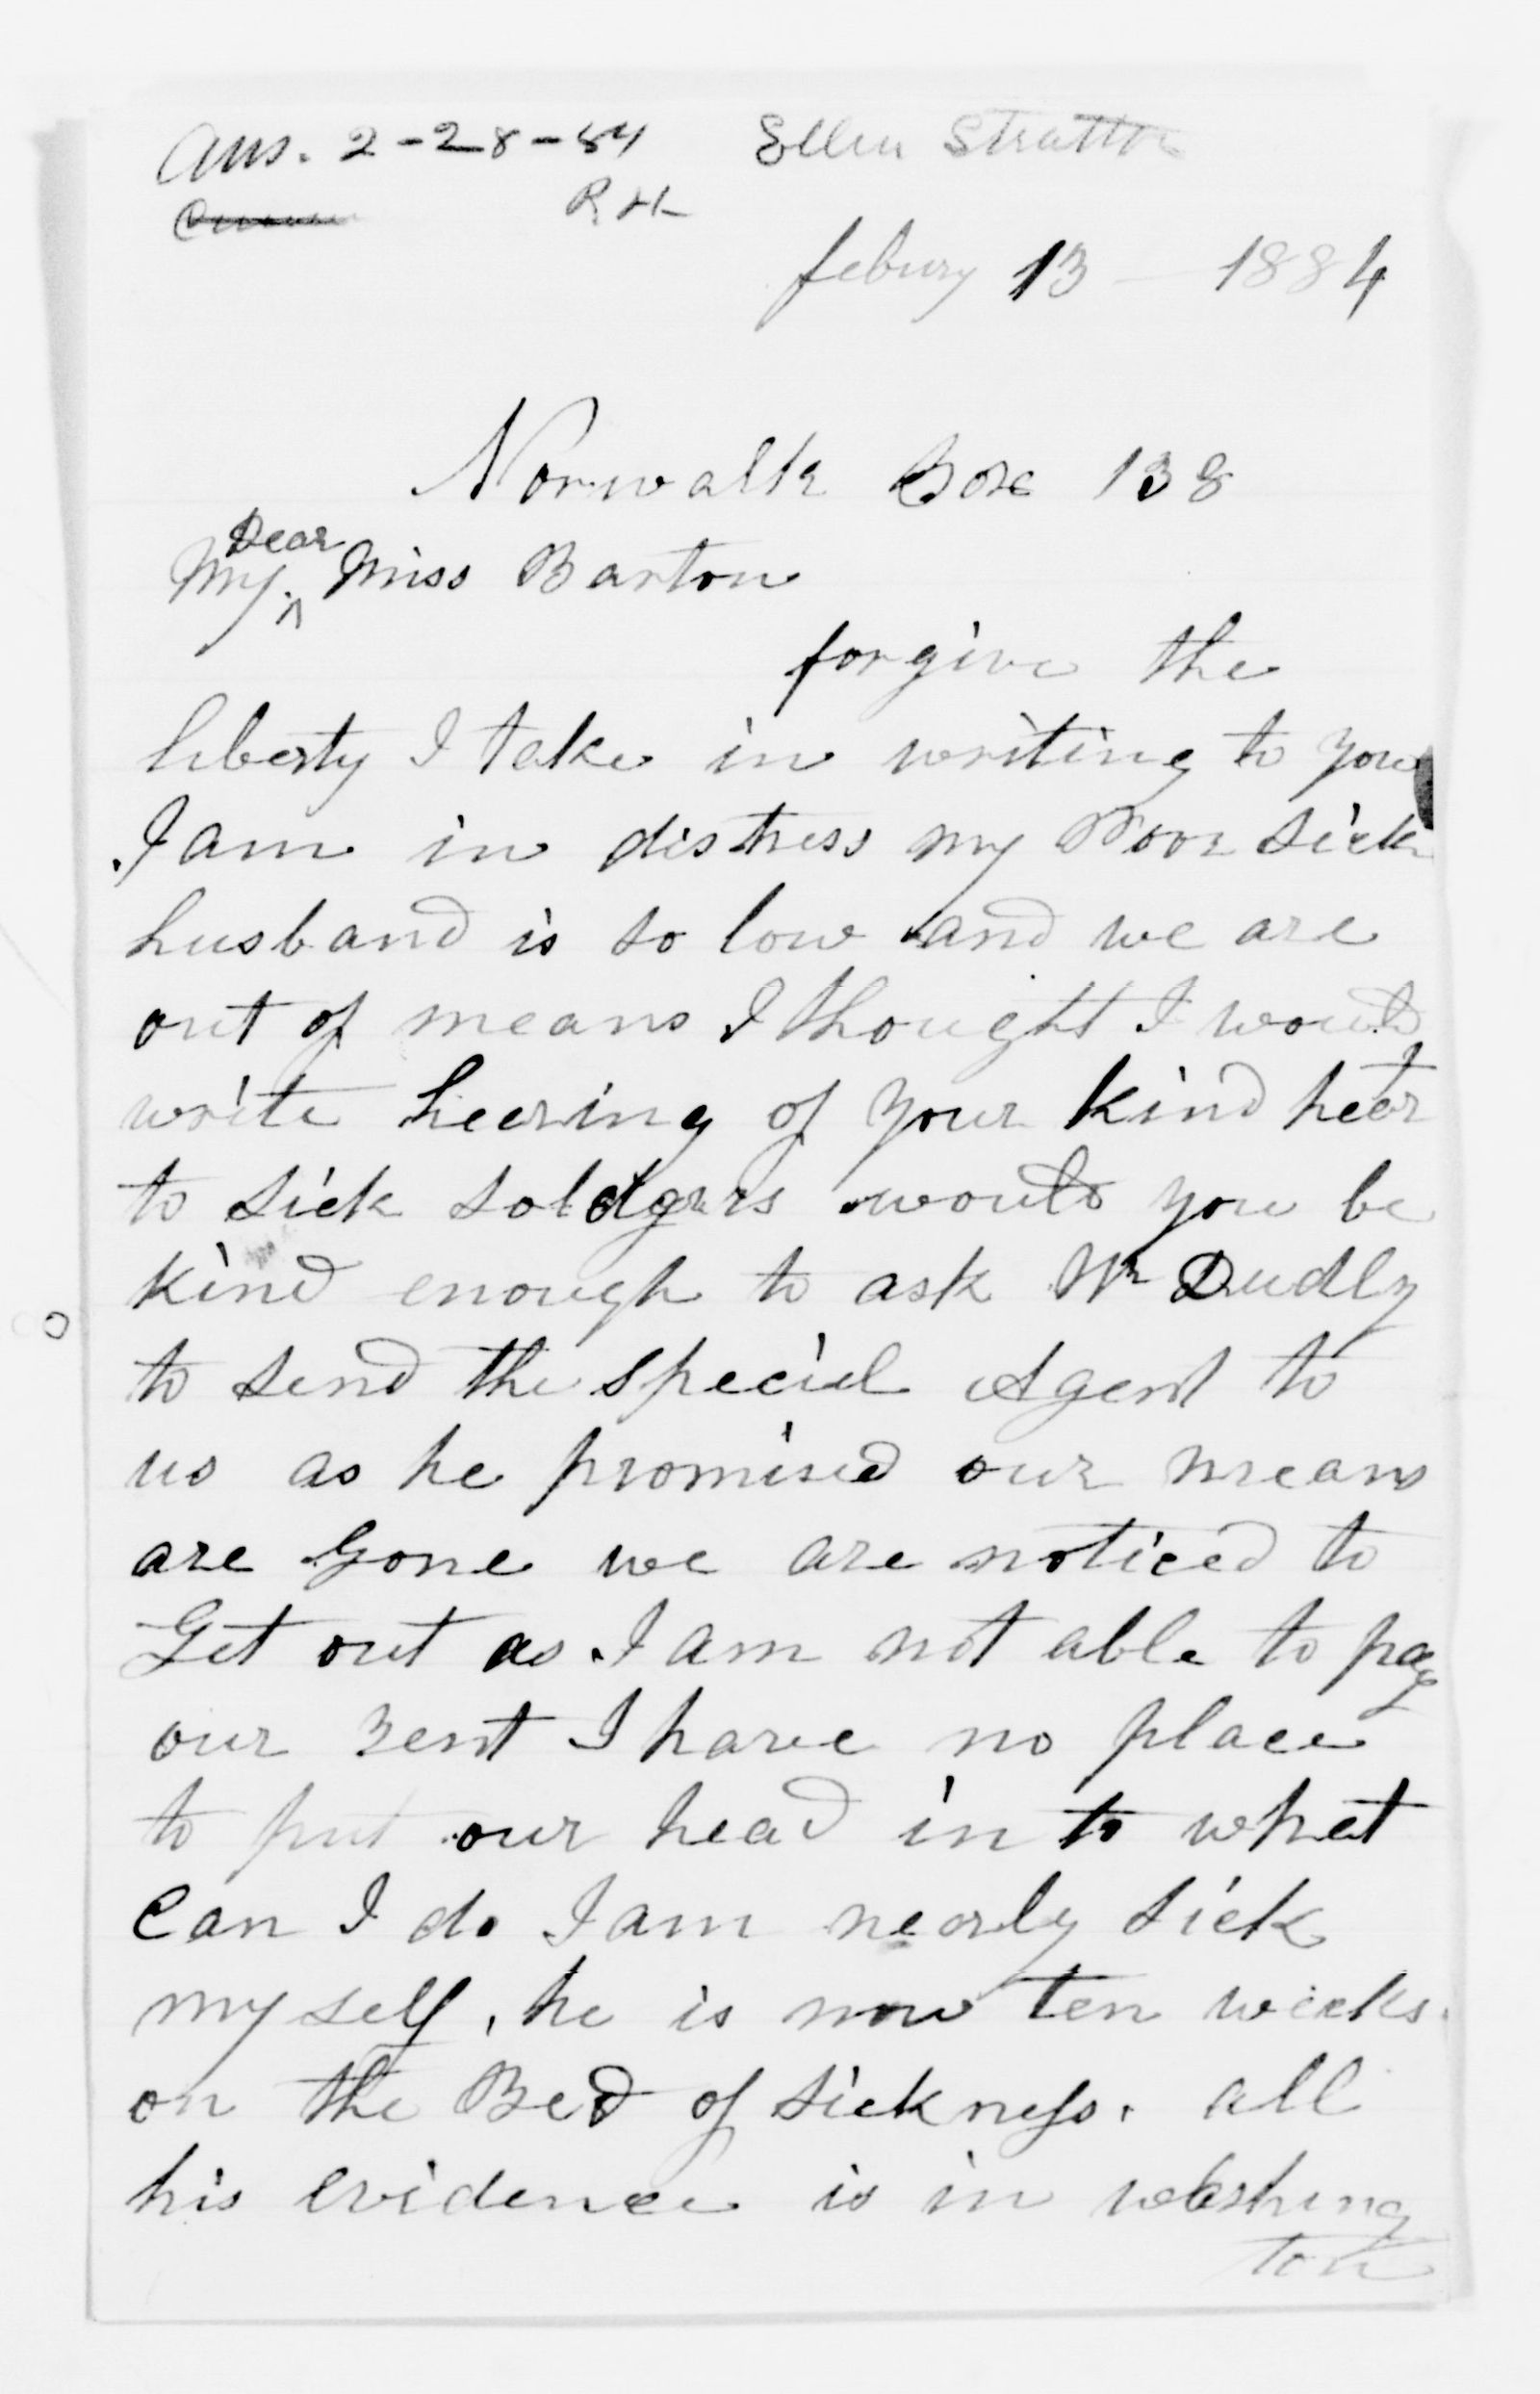 Ans. 2-28-84 Ellen Stratton
R H
febury 13 - 1884
Norwalk Box 138
My Dear Miss Barton
forgive the
liberty I take in writing to you
I am in distress my Poor sick
husband is so low and we are
out of means I thought I would
write heering of your kind heart
to sick soldgers would you be
kind enough to ask Mr Dudly
to send the speciel Agent to
us as he promised our means
are Gone we are noticed to
Get out as I am not able to pay
our rent I have no place
to put our head in to what
Can I do I am nearly sick
my self, he is now ten weeks
on the Bed of sickness. all
his evidence is in washing
ton